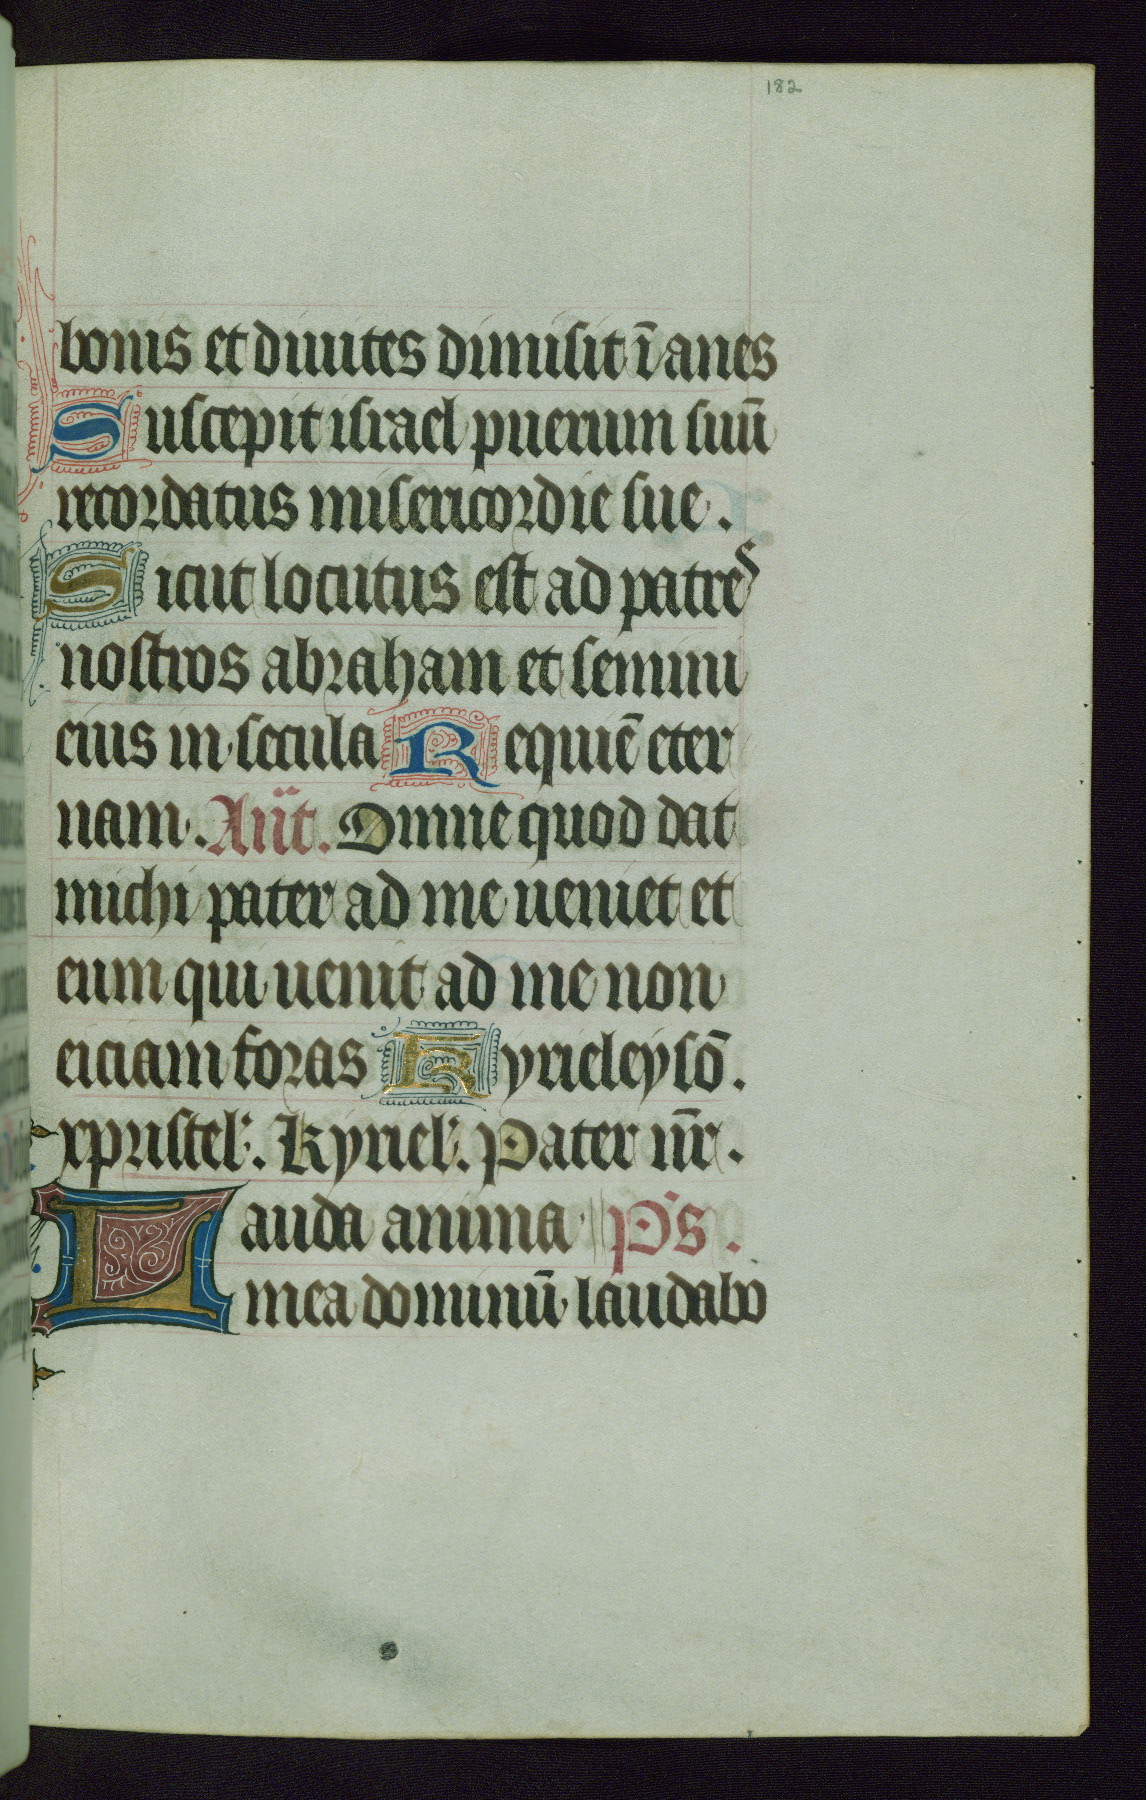 182
bonis et diuites dimisit īanes
Suscepit israel puerum suū
recordatus misericordie sue.
Sicut locutus est ad patres
nostros abraham et semini
eius in secula Requiē eter
nam. Añt. Omne quod dat
michi pater ad me ueniet et
eum qui uenit ad me non
eiciam foras Kyrieleysō.
xpristel. Kyriel. Pater nr̄.
Lauda anima Ps.
mea dominū laudabo